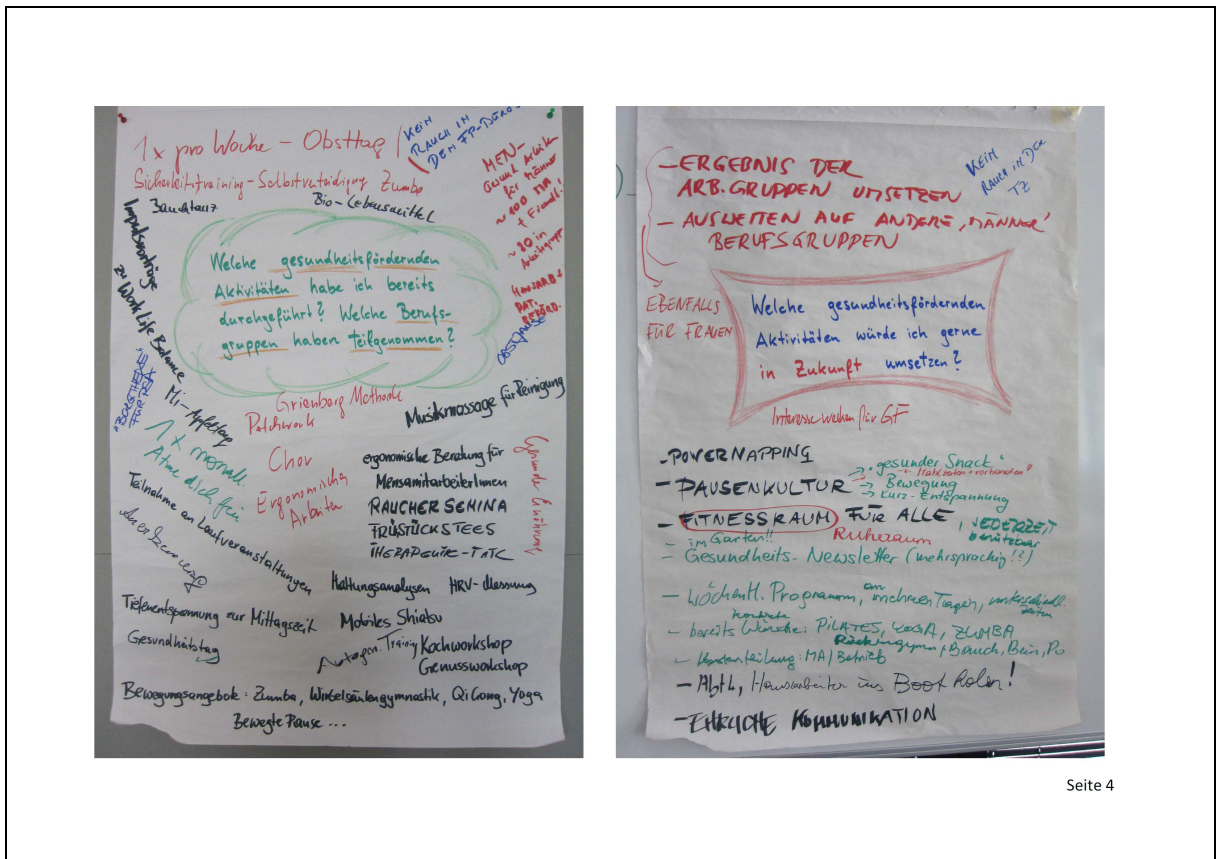 1x pro Woche - Obsttag /
KEIN
RAUCH IN
DEN FP-BÜROS
Sicherheitstraining - Selbstverteidigung Zumba
Bauchtanz
Bio-Lebensmittel
MEN-
Gesund Arbeiten
für Männer
~ 100 MA
+ Fremdf.!
~ 20 in
Arbeitsgruppe
HAUSARB +
PAT.
BEFÖRD.
OBSTPAUSE
Impulsvorträge
zu Work Life Balance
Welche gesundheitsfördernden
Aktivitäten habe ich bereits
durchgeführt? Welche Berufs-
gruppen haben teilgenommen?
FÜR
Mi-Apfeltag
1x monatl.
Atme dich frei
Grienberg Methode
Patchwork
Musikmassage für Reinigung
Chor
Ergonomisches
Arbeiten
ergonomische Beratung für
MensamitarbeiterInnen
RAUCHER SEMINA
FRÜSTÜCKSTEES
Gesunde Ernährung
Teilnahme an Laufveranstaltungen
Haltungsanalysen HRV-Messung
Tiefenentspannung zur Mittagszeit
Mobiles Shiatsu
Gesundheitstag
Autogen. Training Kochworkshop
Genussworkshop
Bewegungsangebote: Zumba, Wirbelsäulengymnastik, Qi Gong, Yoga
Bewegte Pause ...
- ERGEBNIS DER
ARB.GRUPPEN UMSETZEN
KEIN
RAUCH IN DER
TZ
- AUSWEITEN AUF ANDERE „MÄNNER"
BERUFSGRUPPEN
EBENFALLS
FÜR FRAUEN
Welche gesundheitsfördernden
Aktivitäten würde ich gerne
in Zukunft umsetzen?
Interesse wecken für GF
- POWERNAPPING
- PAUSENKULTUR
→ "gesunder Snack"
→ Bewegung
→ Kurz-Entspannung
- FITNESSRAUM FÜR ALLE, JEDERZEIT
benützbar
im Garten!!
Ruheraum
- Gesundheits-Newsletter (mehrsprachig!?)
- wöchentl. Programm, an mehreren Tagen, unterschiedl.
Zeiten
- bereits konkrete Wünsche: PILATES, YOGA, ZUMBA
Rückengymn, Bauch, Bein, Po
- Kostenteilung: MA/Betrieb
- AbtL, Hausarbeiter ins Boot holen!
- EHRLICHE KOMMUNIKATION
Seite 4